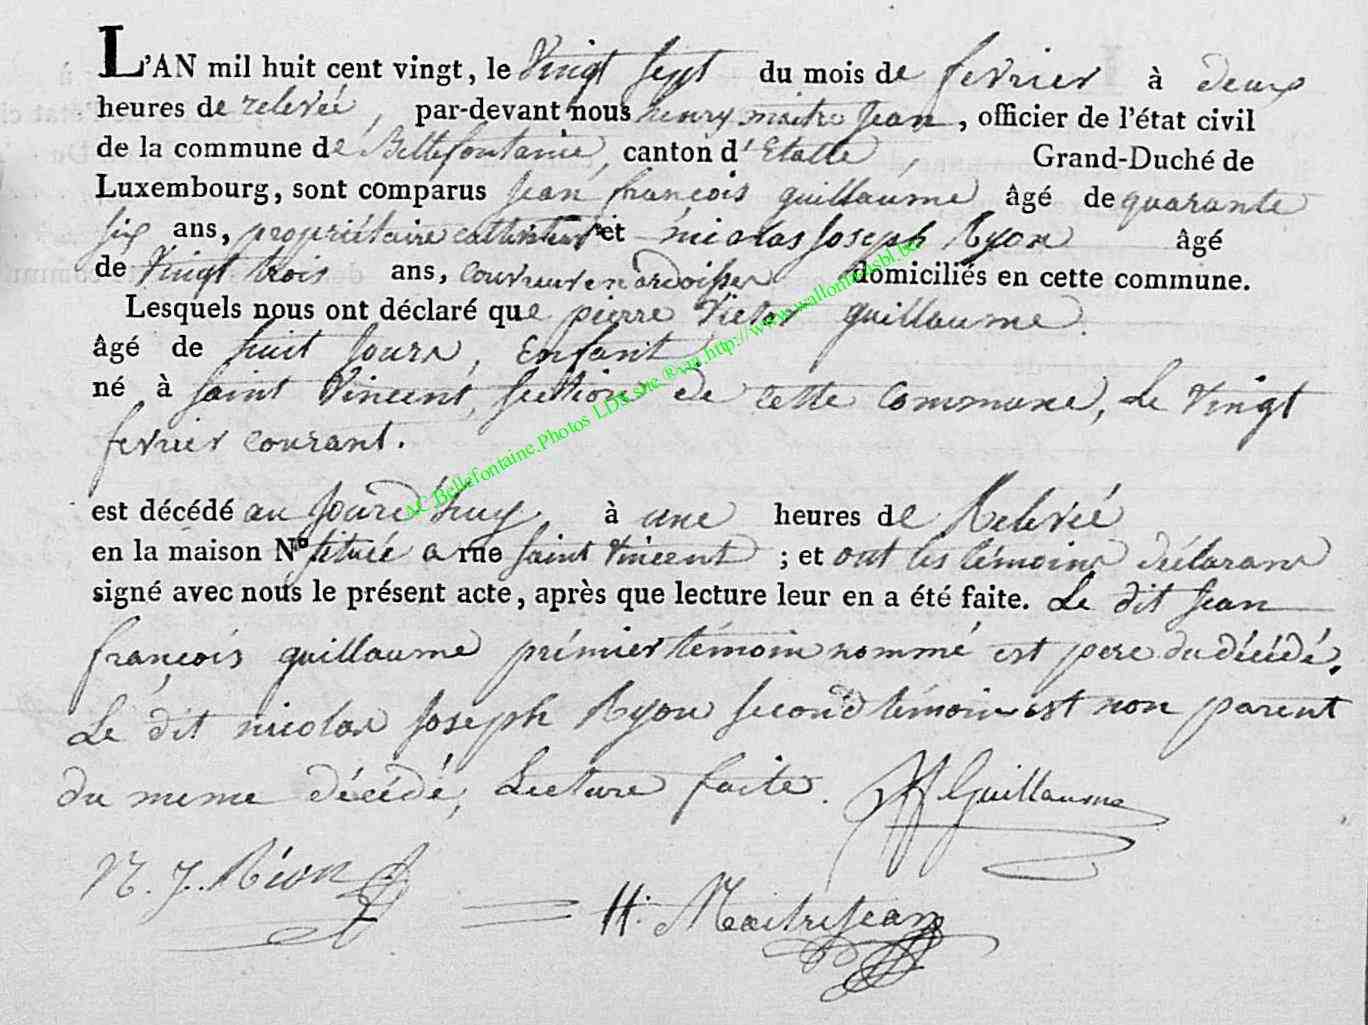 L'AN mil huit cent vingt, le Vingt Sept du mois de fevrier à deux
heures de relevée, par-devant nous henry maitre Jean, officier de l'état civil
de la commune de Bellefontaine, canton d'Etalle, Grand-Duché de
Luxembourg, sont comparus Jean françois guillaume âgé de quarante
six ans, propriétaire cultivateur et nicolas Joseph Ryon âgé
de Vingt trois ans, couvreur en ardoises domiciliés en cette commune.
Lesquels nous ont déclaré que pierre Victor guillaume.
âgé de huit Jours, Enfant
né à Saint Vincent, Section de cette commune, Le Vingt
fevrier courant.
est décédé au Jourd'huy, à une heures de Relevée
en la maison N° située a rue Saint Vincent ; et ont les témoins déclarans
signé avec nous le présent acte, après que lecture leur en a été faite. Le dit Jean
françois guillaume prémier témoin nommé est pere du décédé.
Le dit nicolas Joseph Ryon Second témoin est non parent
du meme décédé, Lecture faite. JF Guillaume
N. J. Rion
H. MaitreJean
AC Bellefontaine.Photos LDS site ®xav.http://www.wallonia-asbl.be